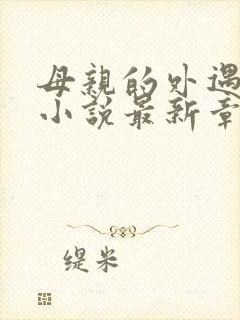 母親的外遇
小說最新章
缇米